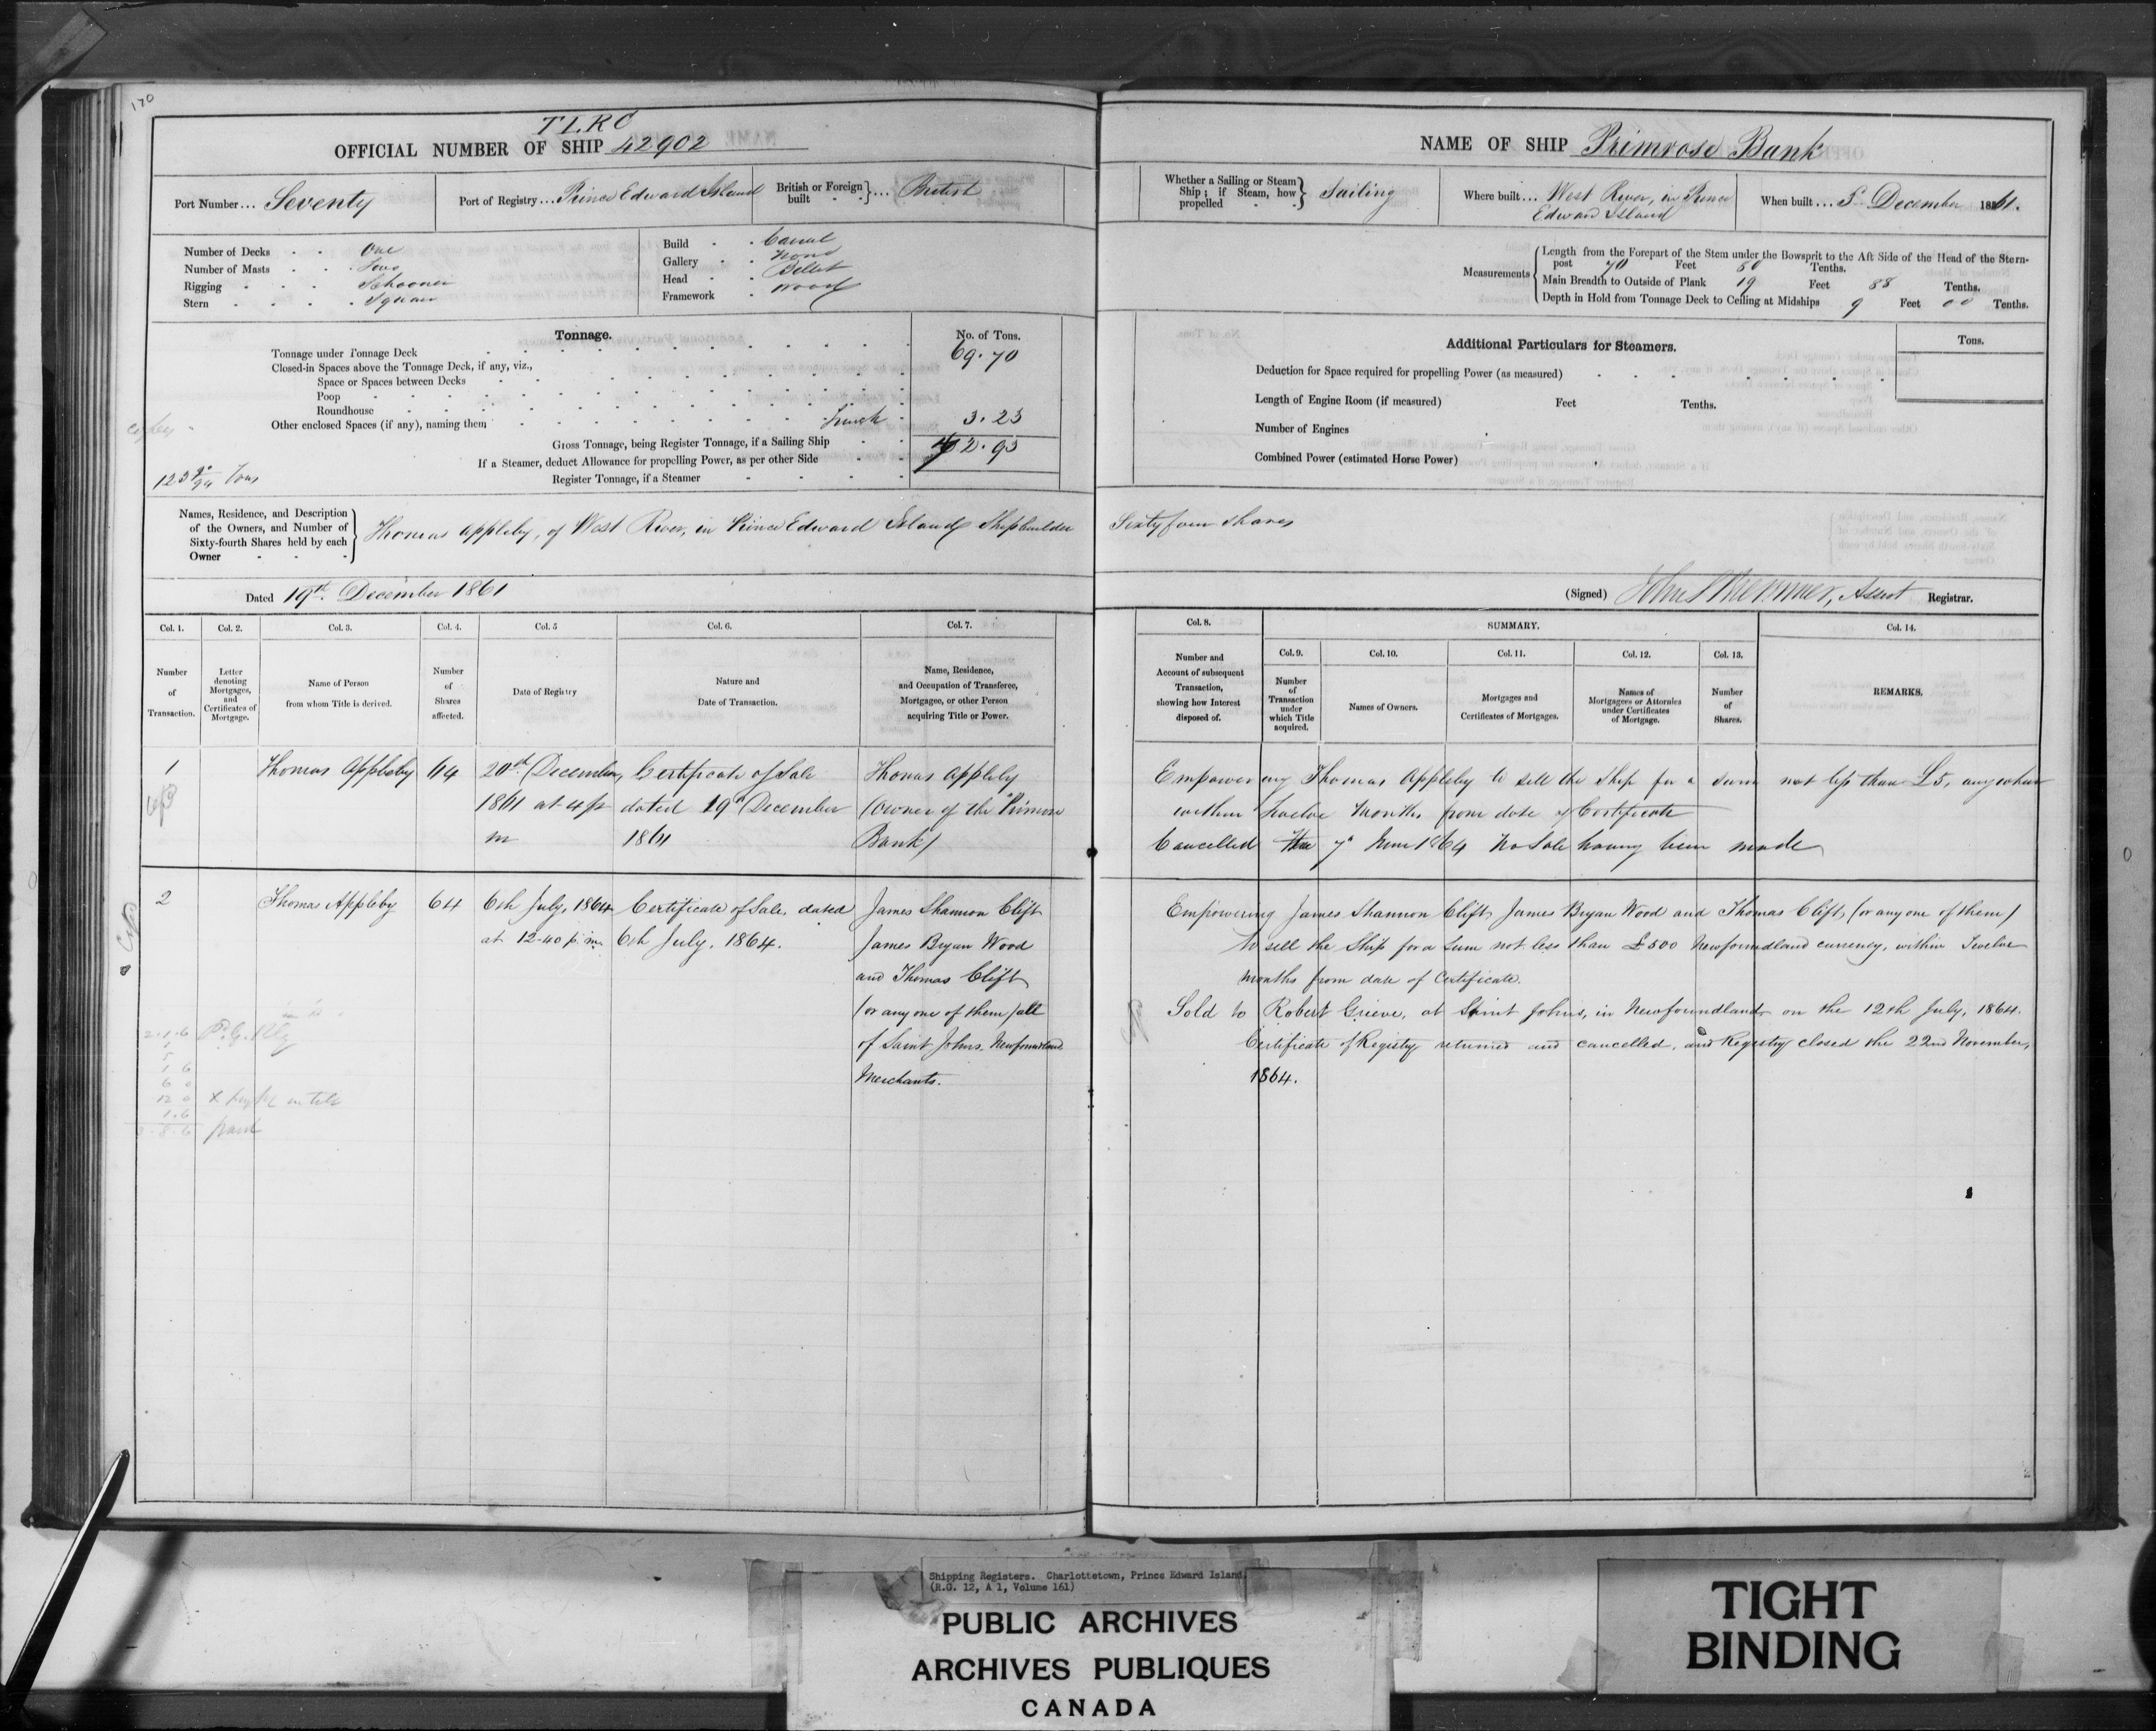 170
TLRC
OFFICIAL NUMBER OF SHIP 42902
Port Number... Seventy
Port of Registry... Prince Edward Island
British or Foreign built } ... British
Number of Decks One
Number of Masts Two
Rigging Schooner
Stern Square
Build Carvel
Gallery None
Head Billet
Framework Wood
Tonnage.
No. of Tons.
Tonnage under Tonnage Deck 69.70
Closed-in Spaces above the Tonnage Deck, if any, viz.,
Space or Spaces between Decks
Poop
Roundhouse
Other enclosed Spaces (if any), naming them Trunk 3.23
Gross Tonnage, being Register Tonnage, if a Sailing Ship 72.93
If a Steamer, deduct Allowance for propelling Power, as per other Side
Register Tonnage, if a Steamer
Tons
Names, Residence, and Description of the Owners, and Number of Sixty-fourth Shares held by each Owner } Thomas Appleby, of West River, in Prince Edward Island Shipbuilder
Dated 19th December 1861
Col. 1. Col. 2. Col. 3. Col. 4. Col. 5 Col. 6. Col. 7.
Number of Transaction.
Letter denoting Mortgages, and Certificates of Mortgage.
Name of Person from whom Title is derived.
Number of Shares affected.
Date of Registry
Nature and Date of Transaction.
Name, Residence, and Occupation of Transferee, Mortgagee, or other Person acquiring Title or Power.
1 Thomas Appleby 64 20th December, Certificate of Sale Thomas Appleby
1861 at 4 p dated 19th December (Owner of the "Primrose
m 1861 Bank")
2 Thomas Appleby 64 6th July, 1864 Certificate of Sale, dated James Shannon Clift
at 12-40 p.m. 6th July, 1864. James Bryan Wood
and Thomas Clift
(or any one of them) all
of Saint Johns, Newfoundland
Merchants.
2.1.6
paid
NAME OF SHIP Primrose Bank
Whether a Sailing or Steam Ship; if Steam, how propelled } Sailing
Where built... West River, in Prince
Edward Island
When built... 5th December 1861.
Measurements
Length from the Forepart of the Stem under the Bowsprit to the Aft Side of the Head of the Stern-
post 70 Feet 50 Tenths.
Main Breadth to Outside of Plank 19 Feet 88 Tenths.
Depth in Hold from Tonnage Deck to Ceiling at Midships 9 Feet 00 Tenths.
Additional Particulars for Steamers.
Tons.
Deduction for Space required for propelling Power (as measured)
Length of Engine Room (if measured) Feet Tenths.
Number of Engines
Combined Power (estimated Horse Power)
Sixty four shares
(Signed) John Asst Registrar.
Col. 8. SUMMARY. Col. 14.
Col. 9. Col. 10. Col. 11. Col. 12. Col. 13.
Number and Account of subsequent Transaction, showing how Interest disposed of.
Number of Transaction under which Title acquired.
Names of Owners.
Mortgages and Certificates of Mortgages.
Names of Mortgagees or Attornies under Certificates of Mortgage.
Number of Shares.
REMARKS.
Empowering Thomas Appleby to sell the Ship for a sum not less than £5, anywhere
within twelve Months from date of Certificate
Cancelled 7th June 1864 No Sale having been made
Empowering James Shannon Clift, James Bryan Wood and Thomas Clift, (or any one of them)
to sell the Ship for a sum not less than £500 Newfoundland currency, within Twelve
months from date of Certificate.
Sold to Robert Grieve, at Saint Johns, in Newfoundland on the 12th July, 1864.
Certificate of Registry returned and cancelled, and Registry closed the 22nd November,
1864.
Shipping Registers. Charlottetown, Prince Edward Island.
(R.G. 12, A 1, Volume 161)
PUBLIC ARCHIVES
ARCHIVES PUBLIQUES
CANADA
TIGHT
BINDING